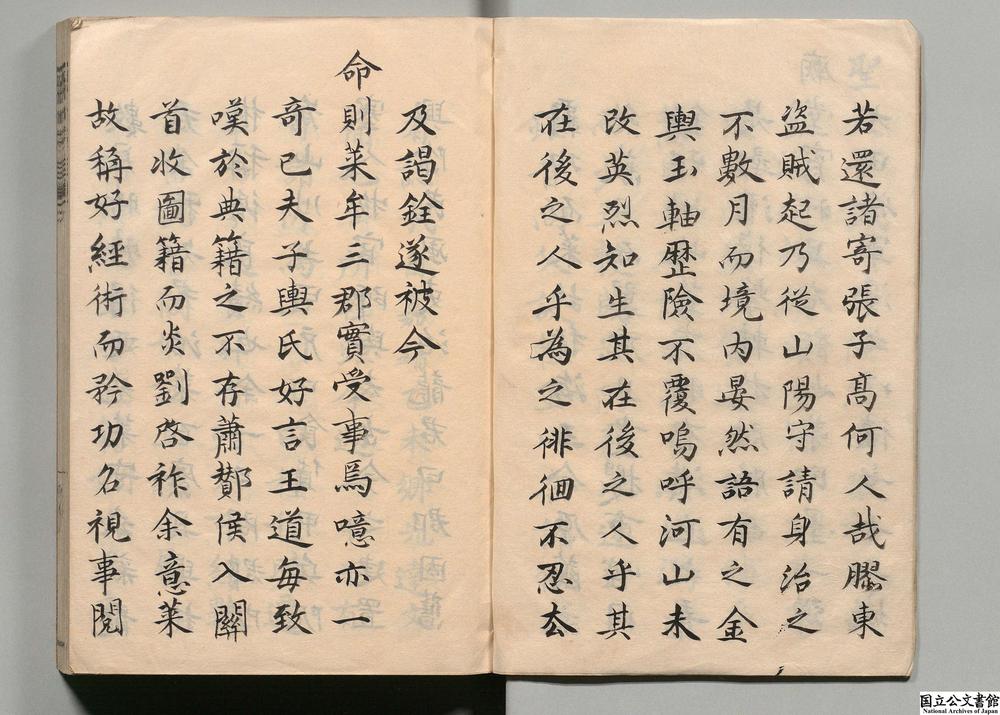 若還諸寄張子髙何人哉膠東
盗賊起乃從山陽守請身治之
不數月而境内晏然語有之金
輿玉軸歴險不覆嗚呼河山未
改英烈如生其在後之人乎其
在後之人乎為之徘徊不忍去
及謁銓遂被今
命則萊牟三郡實受事焉噫亦一
奇已夫子輿氏好言王道每致
嘆於典籍之不存蕭酇侯入關
首收圖籍而炎劉啓祚余意萊
故稱好經術而矜功名視事閱
国立公文書館
National Archives of Japan